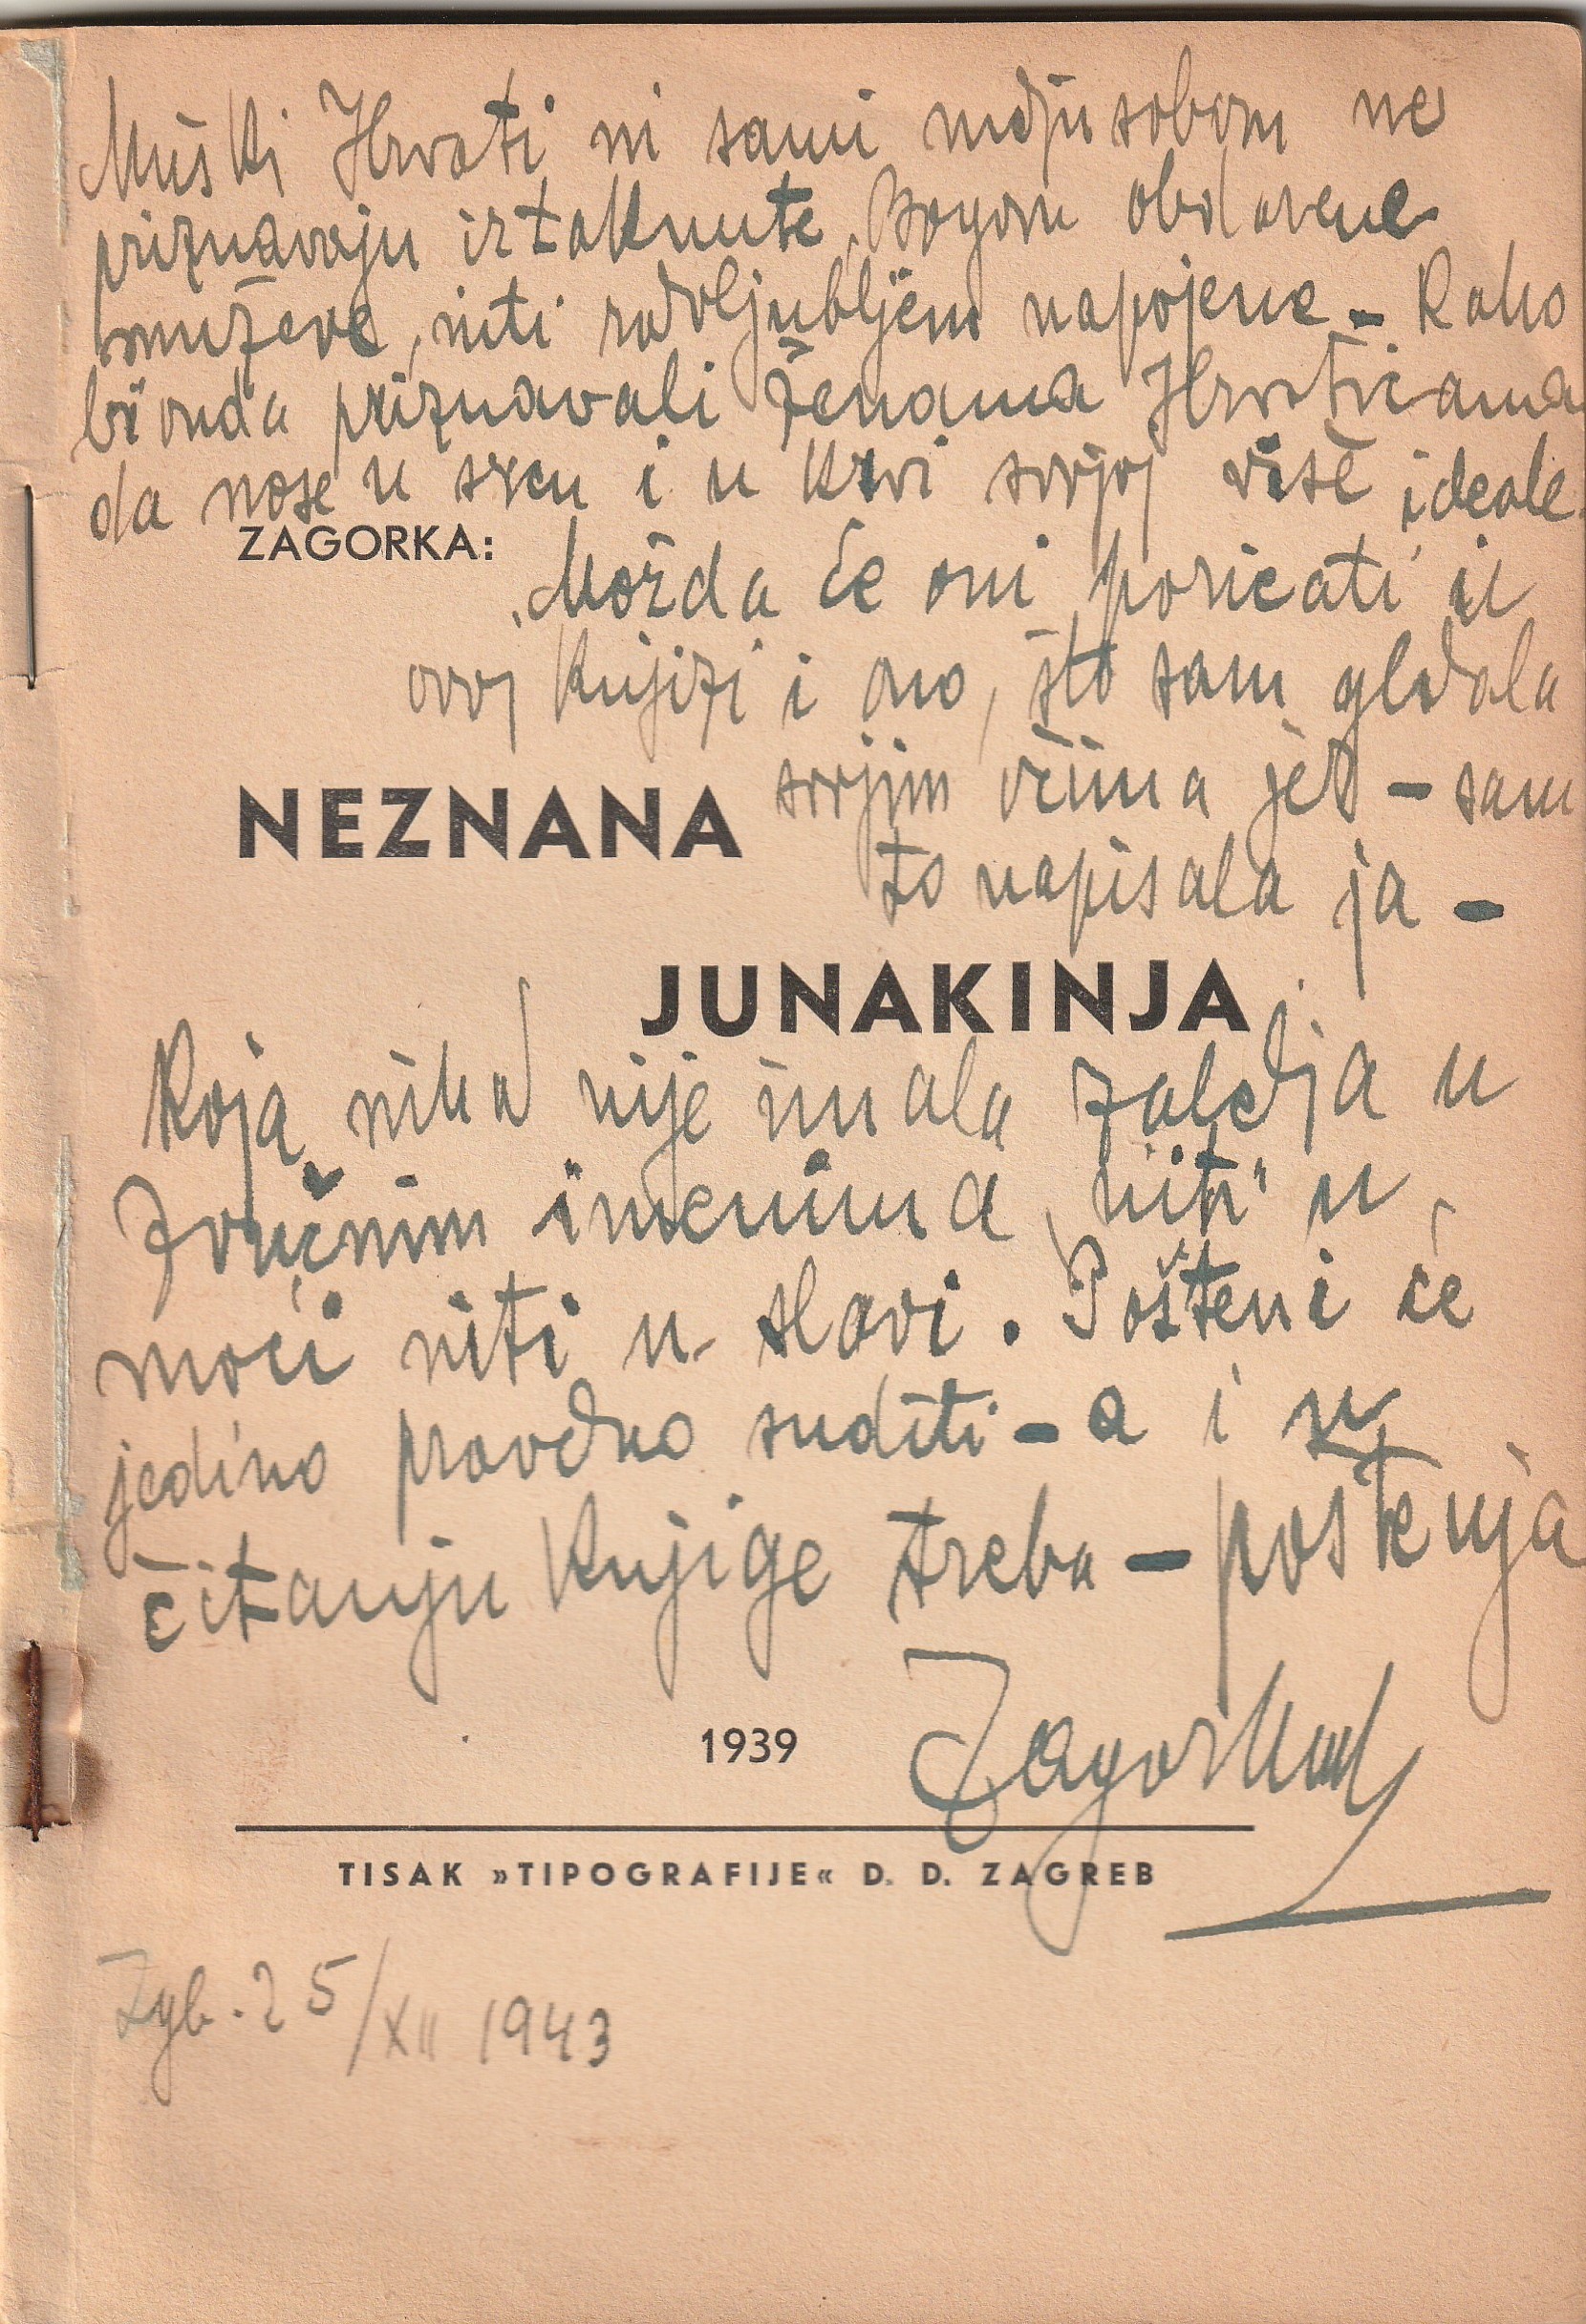 Muški Hrvati ni sami medju sobom ne
priznavaju iztaknute, Bogom obdarene
muževe, niti rodoljubljem napojene - Kako
bi onda priznavali ženama Hrvaticama
da nose u srcu i u krvi svojoj više ideale.
ZAGORKA:
Možda će oni poricati u
ovoj knjizi i ono, što sam gledala
NEZNANA
svojim očima jer - sam
to napisala ja -
JUNAKINJA
Koja nikad nije imala zaledja u
zvučnim imenima, niti u
moći niti u slavi. Pošteni će
jedino pravedno suditi - a i u
čitanju knjige treba - poštenja
Zagorka
1939
TISAK »TIPOGRAFIJE« D. D. ZAGREB
Zgb. 25/XII 1943